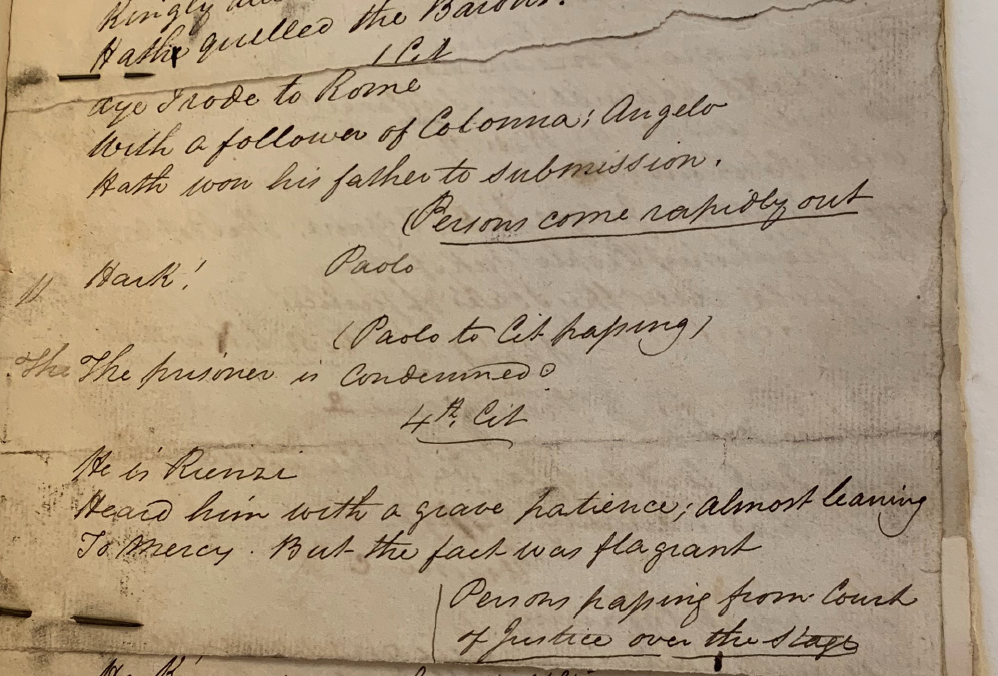 Kingly
Hath quelled the Barons.
1 Cit
Aye I rode to Rome
With a follower of Colonna; Angelo
Hath won his father to submission.
(Persons come rapidly out
Paolo
Hark!
(Paolo to Cit passing)
The The prisoner is condemned?
4th. Cit
He is Rienzi
Heard him with a grave patience; almost leaning
To Mercy. But the fact was flagrant
Persons passing from Court
of Justice over the Stage